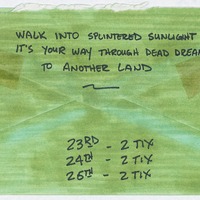 WALK INTO SPLINTERED SUNLIGHT
IT'S YOUR WAY THROUGH DEAD DREAM
TO ANOTHER LAND
23RD - 2 TIX
24TH - 2 TIX
26TH - 2 TIX